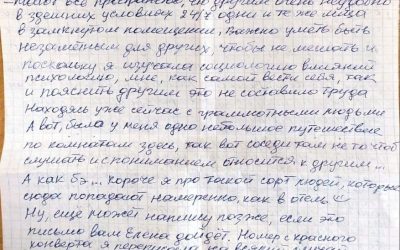 всё прекрасно, что другим очень неудобно
в здешних условиях 24/7 одни и те же лица
в замкнутом помещении, важно уметь быть
незаметным для других, чтобы не мешать и
поскольку я изучала социологию влияний
психологию, мне, как самой вести себя, так
и пояснить другим это не составило труда
Находясь уже сейчас с грамотными людьми
А вот, была у меня одно небольшое путешествие
по комнатам здесь, так вот соседи там не то чтоб
слушать и с пониманием относится к другим...
А как бэ... короче я про такой сорт людей, которые
сюда попадают намеренно, как в отель
Ну, ещё может напишу позже, если это
письмо вам Елена дойдёт. Номер с красного
конверта я переписала на всякий